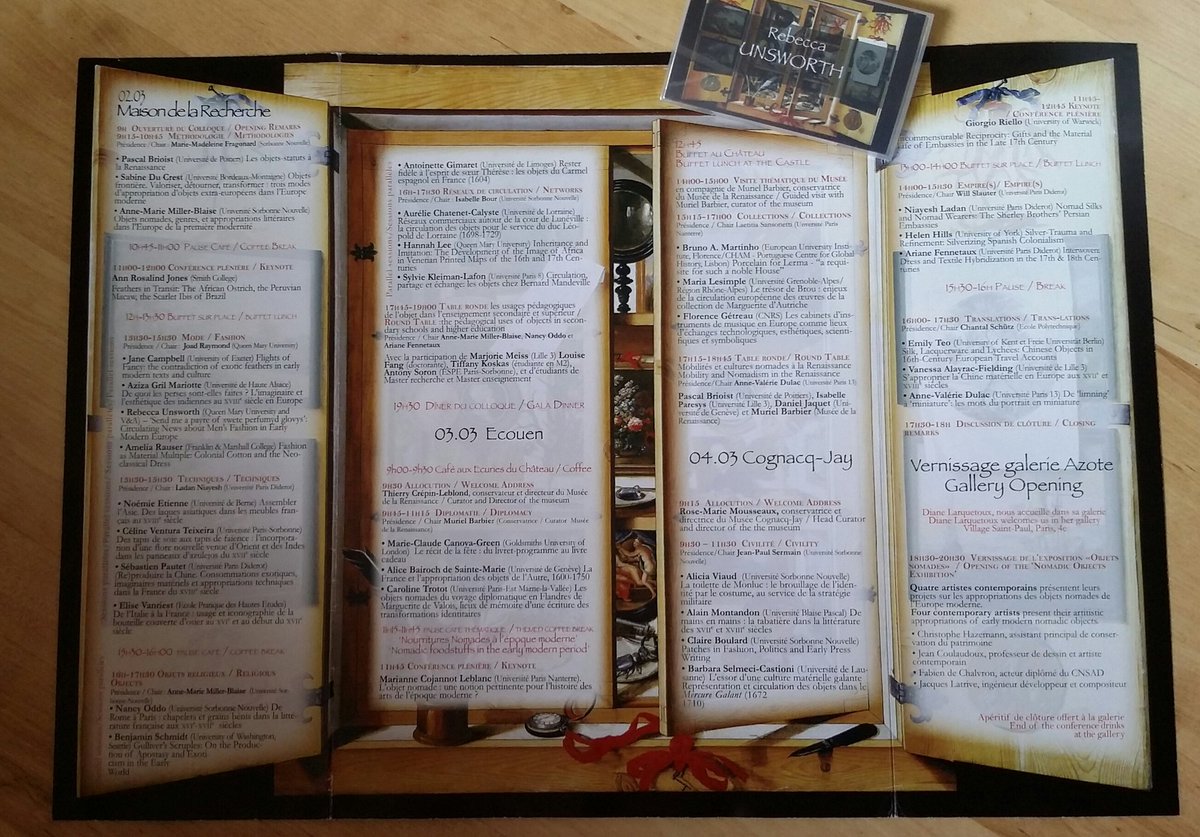 Rebecca
UNSWORTH
02.03
Maison de la Recherche
9h Ouverture du Colloque / Opening Remarks
9h15-10h45 Méthodologie / Methodologies
Présidence / Chair : Marie-Madeleine Fragonard (Sorbonne Nouvelle)
• Pascal Brioist (Université de Poitiers) Les objets-statuts à
la Renaissance
• Sabine Du Crest (Université Bordeaux-Montagne) Objets
frontière. Valoriser, détourner, transformer : trois modes
d'appropriation d'objets extra-européens dans l'Europe
moderne
• Anne-Marie Miller-Blaise (Université Sorbonne Nouvelle)
Objets nomades, genres, et appropriations littéraires
dans l'Europe de la première modernité
10h45-11h00 Pause Café / Coffee Break
11h00-12h00 Conférence plénière / Keynote
Ann Rosalind Jones (Smith College)
Feathers in Transit: The African Ostrich, the Peruvian
Macaw, the Scarlet Ibis of Brazil
12h-13h30 Buffet sur place / Buffet lunch
13h30-15h30 Mode / Fashion
Présidence / Chair : Joad Raymond (Queen Mary University)
• Jane Campbell (University of Exeter) Flights of
Fancy: the contradiction of exotic feathers in early
modern texts and culture
• Aziza Gril Mariotte (Université de Haute Alsace)
De quoi les perses sont-elles faites ? L'imaginaire et
l'esthétique des indiennes au XVIIIe siècle en Europe
• Rebecca Unsworth (Queen Mary University and
V&A) – 'Send me a payre of swete perfumyd glovys':
Circulating News about Men's Fashion in Early
Modern Europe
• Amelia Rauser (Franklin & Marshall College) Fashion
as Material Multiple: Colonial Cotton and the Neo-
classical Dress
13h30-15h30 Techniques / Techniques
Présidence / Chair : Ladan Niayesh (Université Paris Diderot)
• Noémie Etienne (Université de Berne) Assembler
l'Asie. Des laques asiatiques dans les meubles fran-
çais au XVIIIe siècle
• Céline Ventura Teixeira (Université Paris-Sorbonne)
Des tapis de soie aux tapis de faïence : l'incorpora-
tion d'une flore nouvelle venue d'Orient et des Indes
dans les panneaux d'azulejos du XVIIe siècle
• Sébastien Pautet (Université Paris Diderot)
(Re)produire la Chine. Consommations exotiques,
imaginaires matériels et appropriations techniques
dans la France du XVIIIe siècle
• Elise Vanriest (École Pratique des Hautes Études)
De l'Italie à la France : usage et iconographie de la
bouteille couverte d'osier au XVIe et au début du XVIIe
siècle
15h30-16h00 pause café / coffee break
16h-17h30 Objets religieux / Religious
Objects
Présidence / Chair : Anne-Marie Miller-Blaise (Université Sor-
bonne Nouvelle)
• Nancy Oddo (Université Sorbonne Nouvelle) De
Rome à Paris : chapelets et grains bénits dans la litté-
rature française aux XVIe-XVIIe siècles
• Benjamin Schmidt (University of Washington,
Seattle) Gulliver's Scruples: On the Produc-
tion of Apostasy and Exoti
cism in the Early
World
• Antoinette Gimaret (Université de Limoges) Rester
fidèle à l'esprit de sœur Thérèse : les objets du Carmel
espagnol en France (1604)
16h-17h30 Réseaux de circulation / Networks
Présidence / Chair : Isabelle Bour (Université Sorbonne Nouvelle)
• Aurélie Chatenet-Calyste (Université de Lorraine)
Réseaux commerciaux autour de la cour de Lunéville :
la circulation des objets pour le service du duc Léo-
pold de Lorraine (1698-1729)
• Hannah Lee (Queen Mary University) Inheritance and
Imitation: The Development of the Image of Africa
in Venetian Printed Maps of the 16th and 17th Cen-
turies
• Sylvie Kleiman-Lafon (Université Paris 8) Circulation,
partage et échange: les objets chez Bernard Mandeville
17h45-19h00 Table ronde les usages pédagogiques
de l'objet dans l'enseignement secondaire et supérieur /
Round Table :the pedagogical uses of objects in secon-
dary schools and higher education
Présidence / Chair Anne-Marie Miller-Blaise, Nancy Oddo et
Ariane Fennetaux
Avec la participation de Marjorie Meiss (Lille 3) Louise
Fang (doctorante), Tiffany Koskas (étudiante en M2),
Antony Soron (ESPE Paris-Sorbonne), et d'étudiants de
Master recherche et Master enseignement
19h30 Dîner du colloque / Gala Dinner
03.03 Ecouen
9h00-9h30 Café aux Ecuries du Château / Coffee
9h30 Allocution / Welcome Address
Thierry Crépin-Leblond, conservateur et directeur du Musée
de la Renaissance / Curator and Director of the museum
9h45-11h15 Diplomatie / Diplomacy
Présidence / Chair Muriel Barbier (Conservatrice / Curator Musée
de la Renaissance)
• Marie-Claude Canova-Green (Goldsmiths University of
London) Le récit de la fête : du livret-programme au livre
cadeau
• Alice Bairoch de Sainte-Marie (Université de Genève) La
France et l'appropriation des objets de l'Autre, 1600-1750
• Caroline Trotot (Université Paris-Est Marne-la-Vallée) Les
objets nomades du voyage diplomatique en Flandres de
Marguerite de Valois, lieux de mémoire d'une écriture des
transformations identitaires
11h15-11h45 pause café thématique / themed coffee break
'Nourritures Nomades à l'époque moderne'
'Nomadic foodstuffs in the early modern period'
11h45 Conférence plénière / Keynote
Marianne Cojannot Leblanc (Université Paris Nanterre).
L'objet nomade : une notion pertinente pour l'histoire des
arts de l'époque moderne ?
12h45
Buffet au Château
Buffet lunch at the Castle
14h00-15h00 Visite thématique du Musée
en compagnie de Muriel Barbier, conservatrice
du Musée de la Renaissance / Guided visit with
Muriel Barbier, curator of the museum
15h15-17h00 Collections / Collections
Présidence / Chair Laetitia Sansonetti (Université Paris
Nanterre)
• Bruno A. Martinho (European University Insti-
tute, Florence/CHAM - Portuguese Centre for Global
History, Lisbon) Porcelain for Lerma - "a requi-
site for such a noble House"
• Maria Lesimple (Université Grenoble-Alpes/
Région Rhône-Alpes) Le trésor de Brou : enjeux
de la circulation européenne des œuvres de la
collection de Marguerite d'Autriche
• Florence Gétreau (CNRS) Les cabinets d'ins-
truments de musique en Europe comme lieux
d'échanges technologiques, esthétiques, scienti-
fiques et symboliques
17h15-18h45 Table ronde/ Round Table
Mobilités et cultures nomades à la Renaissance
Mobility and Nomadism in the Renaissance
Présidence/Chair Anne-Valérie Dulac (Université Paris 13)
Pascal Brioist (Université de Poitiers), Isabelle
Paresys (Université Lille 3), Daniel Jaquet (Uni-
versité de Genève) et Muriel Barbier (Musée de la
Renaissance)
04.03 Cognacq-Jay
9h15 Allocution / Welcome Address
Rose-Marie Mousseaux, conservatrice et
directrice du Musée Cognacq-Jay / Head Curator
and director of the museum
9h30 – 11h30 Civilité / Civility
Présidence/Chair Jean-Paul Sermain (Université Sorbonne
Nouvelle)
• Alicia Viaud (Université Sorbonne Nouvelle)
La toilette de Monluc : le brouillage de l'iden-
tité par le costume, au service de la stratégie
militaire
• Alain Montandon (Université Blaise Pascal) De
mains en mains : la tabatière dans la littérature
des XVIIe et XVIIIe siècles
• Claire Boulard (Université Sorbonne Nouvelle)
Patches in Fashion, Politics and Early Press
Writing
• Barbara Selmeci-Castioni (Université de Lau-
sanne) L'essor d'une culture matérielle galante
Représentation et circulation des objets dans le
Mercure Galant (1672
1710)
11h45-
12h45 Keynote
/ Conférence plénière
Giorgio Riello (University of Warwick)
commensurable Reciprocity: Gifts and the Material
of Embassies in the Late 17th Century
13h00-14h00 Buffet sur place / Buffet Lunch
14h00-15h30 Empire(s) / Empire(s)
Présidence / Chair Will Slauter (Université Paris Diderot)
Niayesh Ladan (Université Paris Diderot) Nomad Silks
and Nomad Wearers: The Sherley Brothers' Persian
Embassies
• Helen Hills (University of York) Silver-Trauma and
Refinement: Silverizing Spanish Colonialism
Ariane Fennetaux (Université Paris Diderot) Interwoven:
Dress and Textile Hybridization in the 17th & 18th Cen-
turies
15h30-16h Pause / Break
16h00- 17h30 Translations / Trans-lations
Présidence/Chair Chantal Schütz (École Polytechnique)
• Emily Teo (University of Kent et Freie Universität Berlin)
Silk, Lacquerware and Lychees: Chinese Objects in
16th-Century European Travel Accounts
• Vanessa Alayrac-Fielding (Université de Lille 3)
S'approprier la Chine matérielle en Europe aux XVIIe et
XVIIIe siècles
• Anne-Valérie Dulac (Université Paris 13) De 'limning'
à 'miniature': les mots du portrait en miniature
17h30-18h Discussion de clôture / Closing
remarks
Vernissage galerie Azote
Gallery Opening
Diane Larquetoux, nous accueille dans sa galerie
Diane Larquetoux welcomes us in her gallery
Village Saint-Paul, Paris, 4e
18h30-20h30 Vernissage de l'exposition «Objets
nomades» / Opening of the 'Nomadic Objects
Exhibition'
Quatre artistes contemporains présentent leurs
projets sur les appropriations des objets nomades de
l'Europe moderne.
Four contemporary artists present their artistic
appropriations of early modern nomadic objects.
- Christophe Hazemann, assistant principal de conser-
vation du patrimoine
• Jean Coulaudoux, professeur de dessin et artiste
contemporain
• Fabien de Chalvron, acteur diplômé du CNSAD
• Jacques Lattrive, ingénieur développeur et compositeur
Apéritif de clôture offert à la galerie
End of the conference drinks
at the gallery